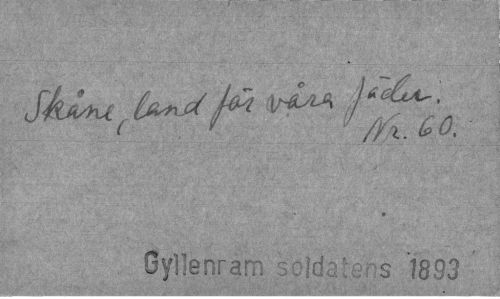 Skåne, land för våra fäder.
Nr. 60.
Gyllenram soldatens 1893